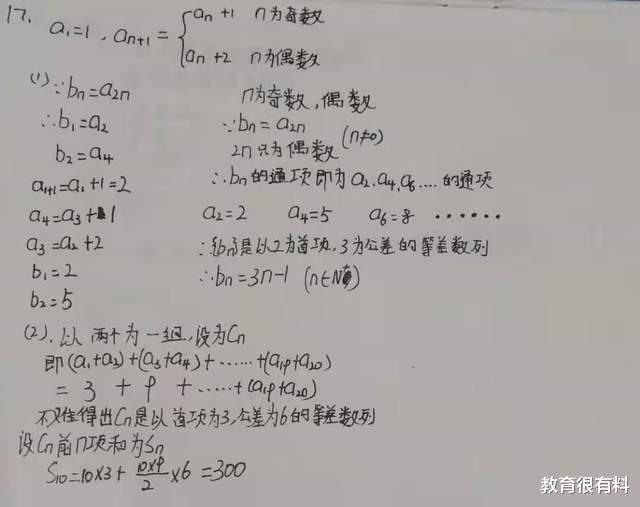 17. a₁=1, aₙ₊₁={aₙ+1 n为奇数
aₙ+2 n为偶数
(1) ∵bₙ=a₂ₙ
∴b₁=a₂
b₂=a₄
a₁₊₁=a₁+1=2
a₄=a₃+1
a₃=a₂+2
b₁=2
b₂=5
n为奇数,偶数
∵bₙ=a₂ₙ
2n只为偶数 (n≠0)
∴bₙ的通项即为a₂,a₄,a₆....的通项
a₂=2 a₄=5 a₆=8 ······
∴{bₙ}是以2为首项,3为公差的等差数列
∴bₙ=3n-1 (n∈N*)
(2).以两个为一组,设为Cₙ
即(a₁+a₂)+(a₃+a₄)+……+(a₁₉+a₂₀)
= 3 + 9 +……+(a₁₉+a₂₀)
不难得出Cₙ是以首项为3,公差为6的等差数列
设Cₙ前n项和为Sₙ
S₁₀=10×3+10×9/2×6=300
教育很有料